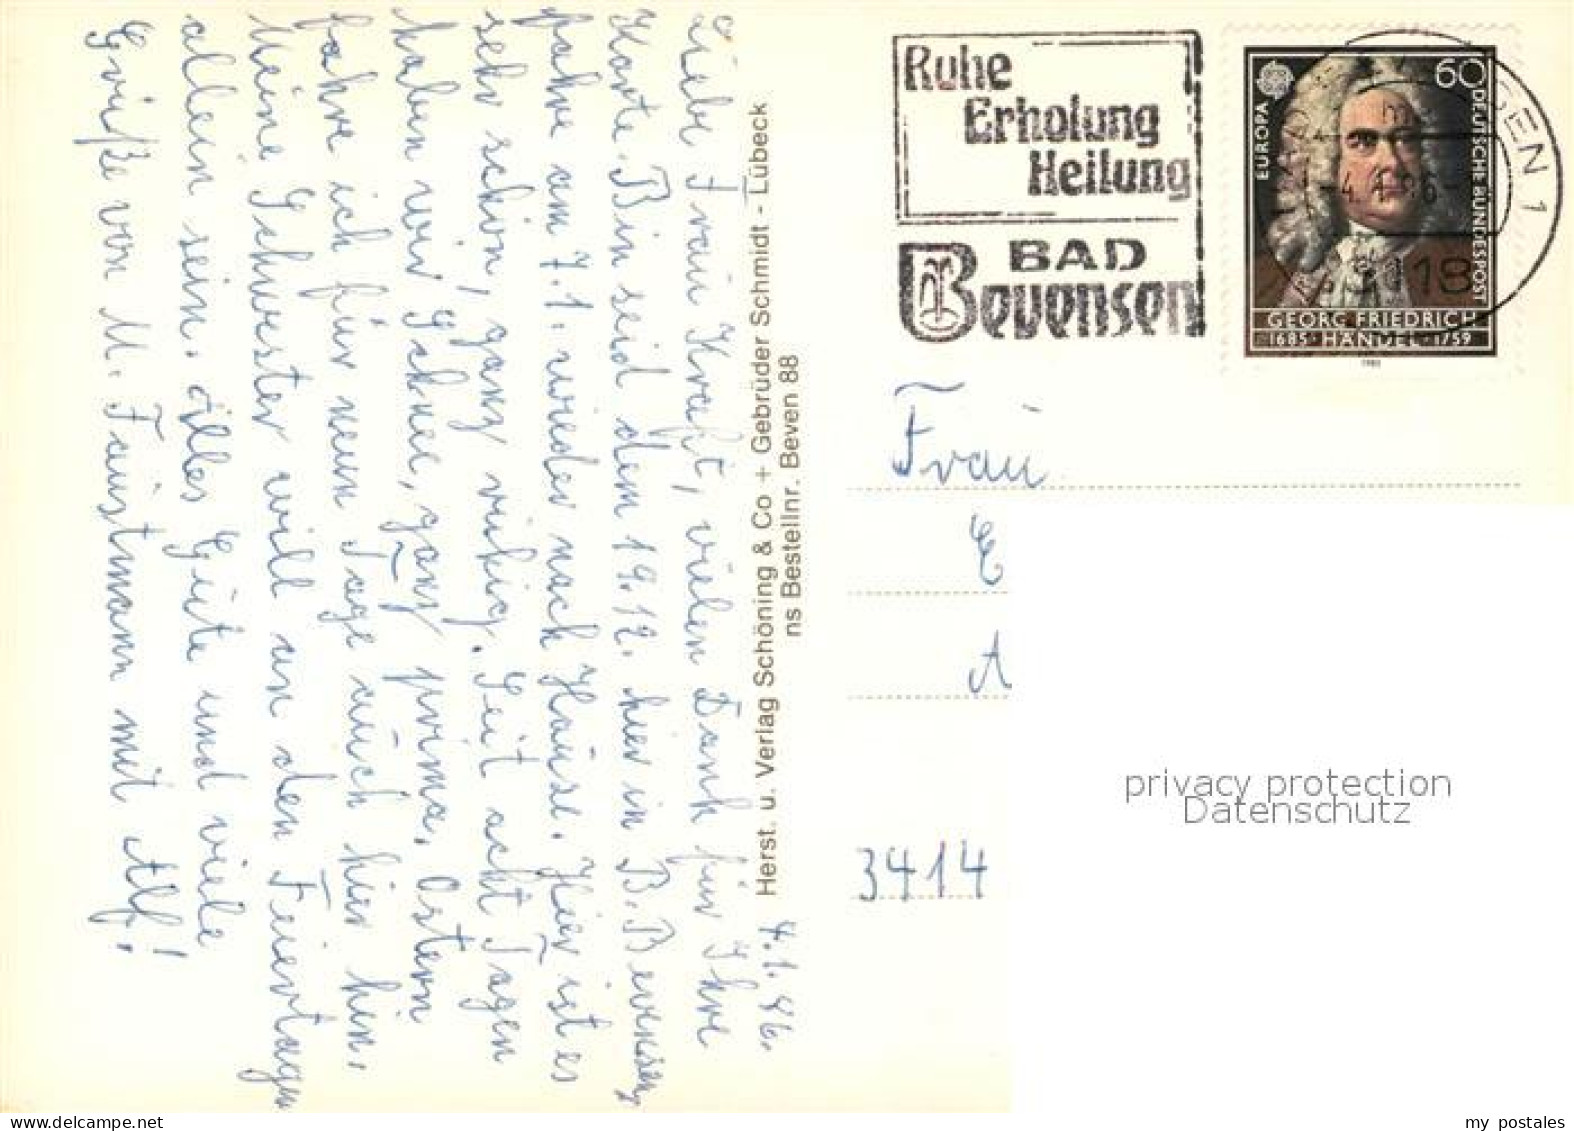 4.1.86.
Liebe Frau Kraft, vielen Dank für Ihre
Karte. Bin seid dem 19.12. hier in B. Bevensen,
fahre am 7.1. wieder nach Hause. Hier ist es
sehr schön, ganz ruhig. Seit acht Tagen
haben wir Schnee, ganz prima. Ostern
fahre ich für neun Tage auch hier hin.
Meine Schwester will an den Feiertagen
allein sein. Alles Gute und viele
Grüße von M. Faustmann mit Alf!
Herst. u. Verlag Schöning & Co + Gebrüder Schmidt - Lübeck
ns Bestellnr. Beven 88
Ruhe
Erholung
Heilung
BAD
Bevensen
EUROPA
60
DEUTSCHE BUNDESPOST
GEORG FRIEDRICH
1685 · HÄNDEL · 1759
3118
Frau
E
A
3414
privacy protection
Datenschutz
my postales